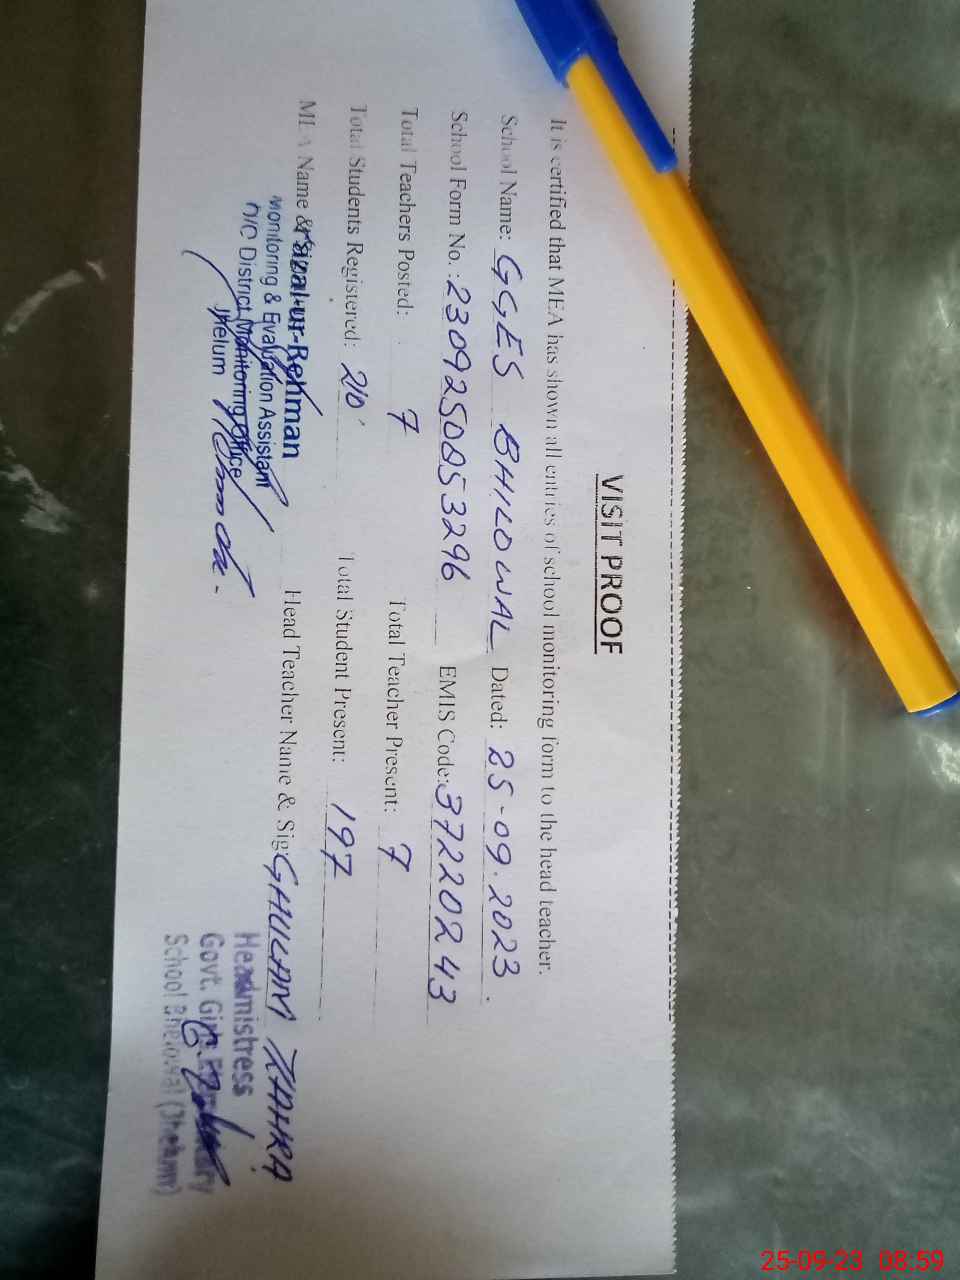 VISIT PROOF
It is certified that MEA has shown all entries of school monitoring form to the head teacher.
School Name: GGES BHILOWAL Dated: 25-09.2023.
School Form No.: 2309250053296 EMIS Code: 37220243
Total Teachers Posted: 7 Total Teacher Present: 7
Total Students Registered: 210 Total Student Present: 197
MEA Name & Head Teacher Name & Sig: GHULAM ZAHRA
ur-Rehman
Monitoring & Evaluation Assistant
O/O District Monitoring Office
Jhelum
Headmistress
Govt. Girls Elementary
School (Jhelum)
25-09-23 08:59